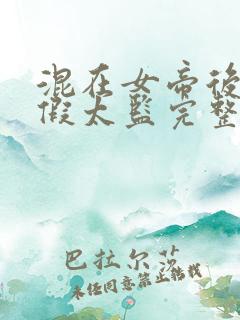 混在女帝后
假太监完整
巴拉尔莎
未经同意禁止转载